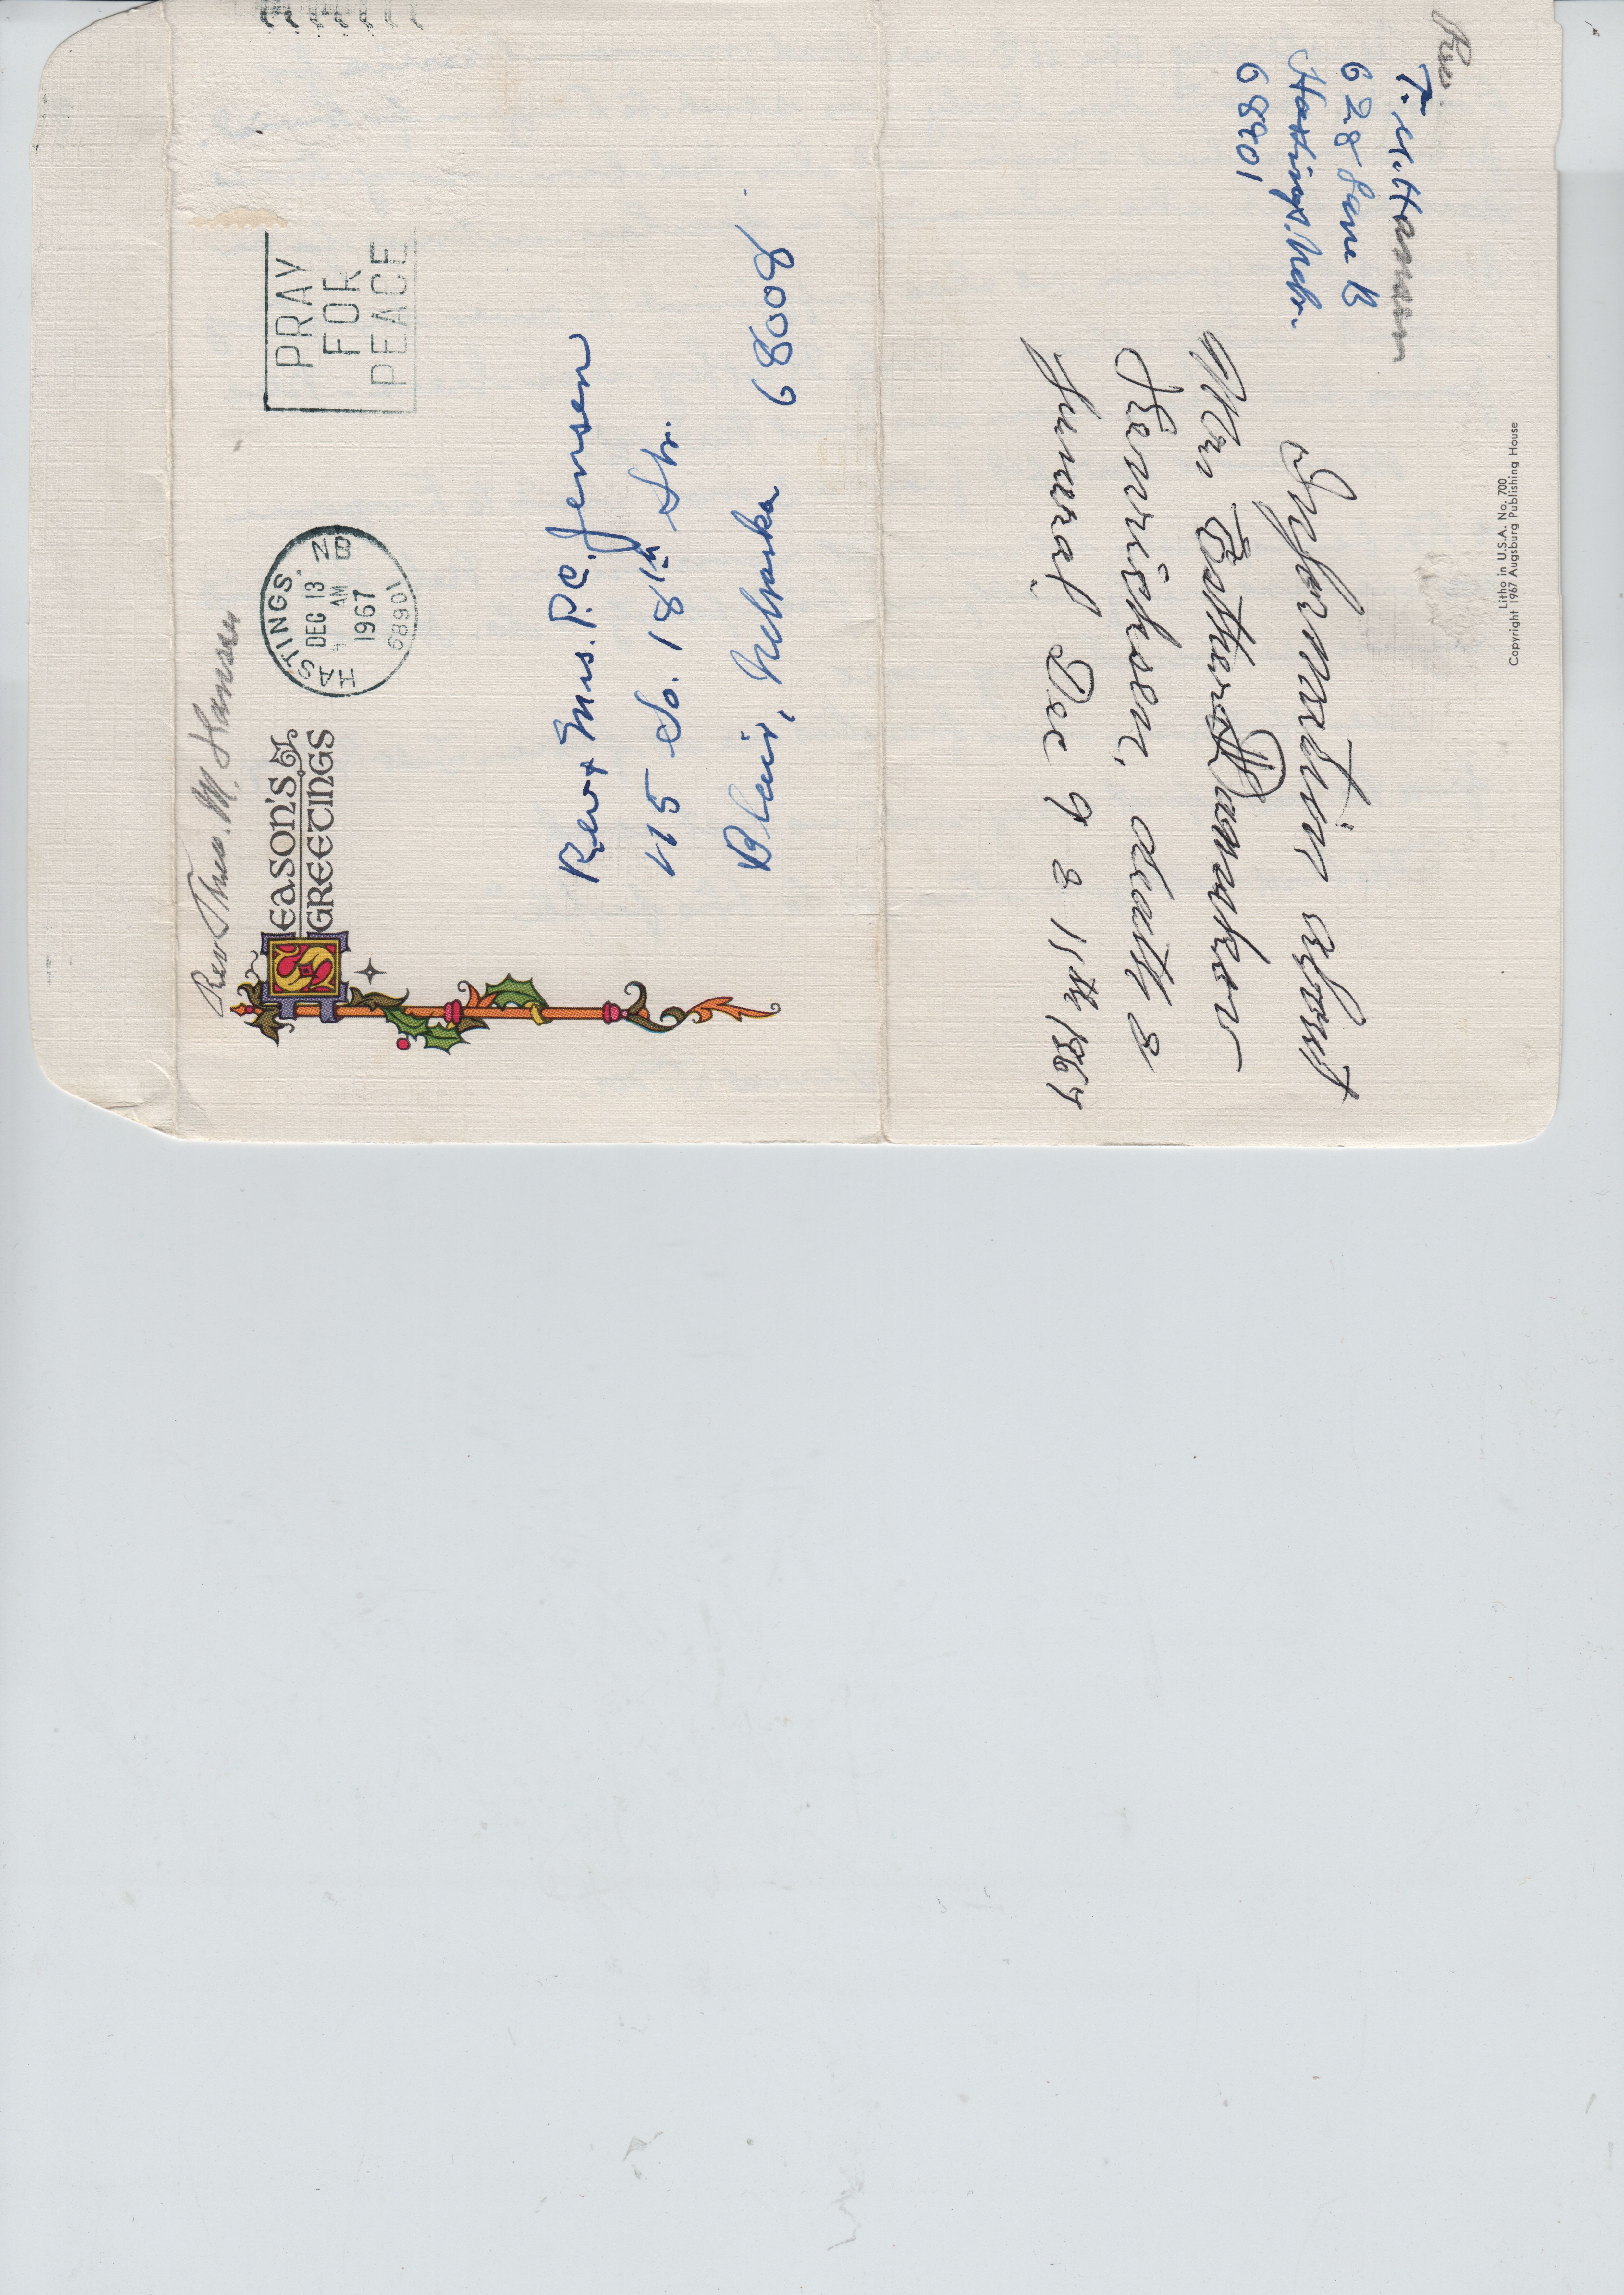 Rev Theo. M. Hansen
SEASON'S
GREETINGS
HASTINGS, NB
DEC 13
AM
1967
68901
PRAY
FOR
PEACE
Rev & Mrs. P.C. Jensen
415 So. 18th Str.
Blair, Nebraska 68008
Rev.
T. M. Hansen
628 Lane B
Hastings, Nebr.
68901
Information about
Mrs Esther Dannkor
Henrichsen, death &
funeral Dec 9 & 15th 1967
Litho in U.S.A. No. 700
Copyright 1967 Augsburg Publishing House